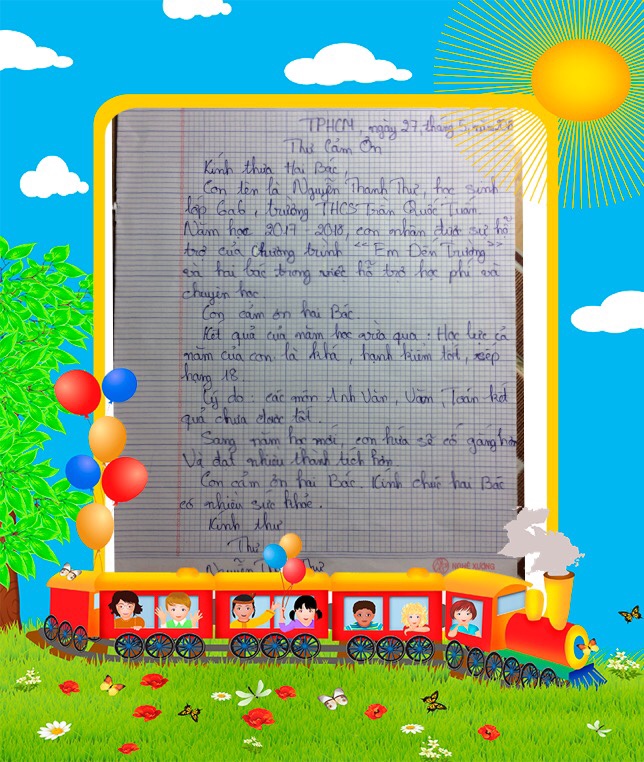 TPHCM, ngày 27, tháng 5, năm 2018
Thư Cảm Ơn
Kính thưa Hai Bác,
Con tên là Nguyễn Thanh Thư, học sinh
lớp 6a6, trường THCS Trần Quốc Tuấn.
Năm học 2017 - 2018, con nhận được sự hỗ
trợ của Chương trình "Em Đến Trường"
và hai bác trong việc hỗ trợ học phí và
chuyện học.
Con cảm ơn hai Bác.
Kết quả của năm học vừa qua: Học lực cả
năm của con là khá, hạnh kiểm tốt, xếp
hạng 18.
Lý do: các môn Anh Văn, Văn, Toán kết
quả chưa được tốt.
Sang năm học mới, con hứa sẽ cố gắng hơn
Và đạt nhiều thành tích hơn.
Con cảm ơn hai Bác. Kính chúc hai Bác
có nhiều sức khỏe.
Kính thư
Thư
Nguyễn Thanh Thư